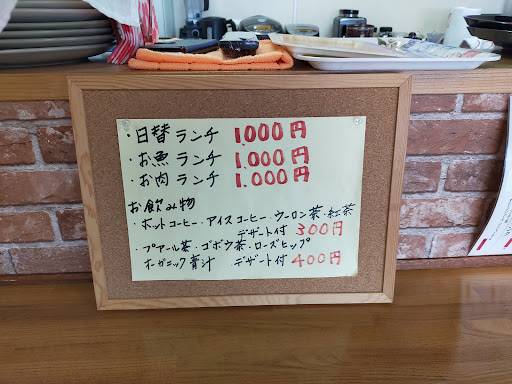 ・日替ランチ 1,000円
・お魚ランチ 1,000円
・お肉ランチ 1,000円
お飲み物
・ホットコーヒー・アイスコーヒー・ウーロン茶・紅茶
デザート付 300円
・プアール茶・ゴボウ茶・ローズヒップ
オーガニック青汁 デザート付 400円